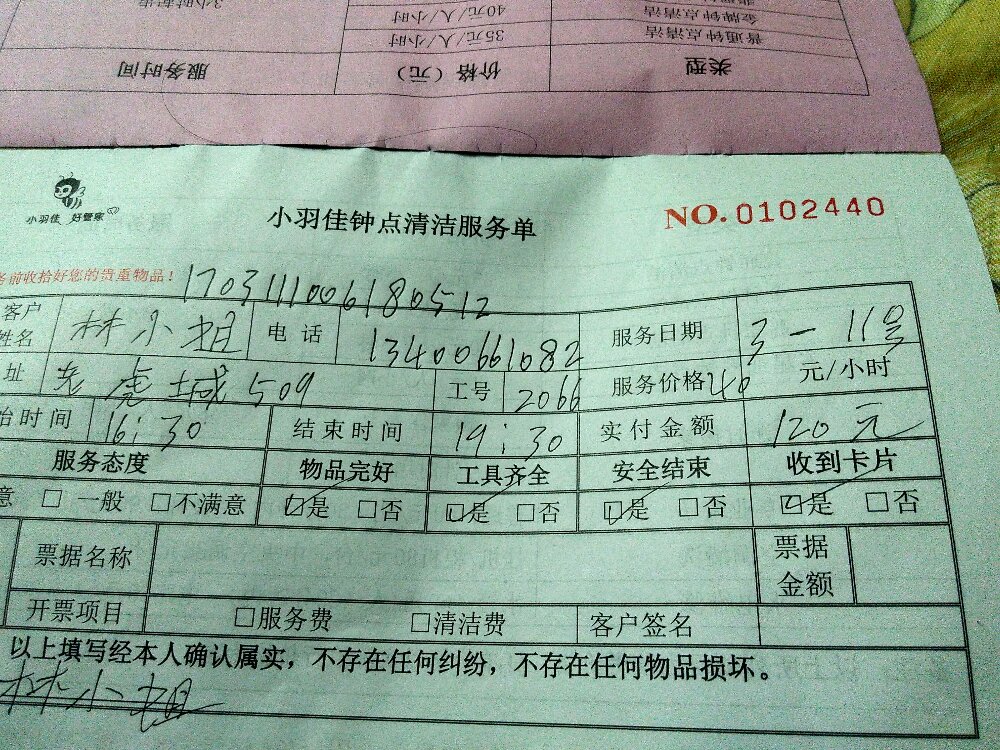 3小时起步
40元/人/小时 金牌钟点清洁
35元/人/小时 普通钟点清洁
服务时间 价格（元） 类型
小羽佳 好管家
小羽佳钟点清洁服务单
NO.0102440
务前收拾好您的贵重物品！
1703111006180512
客户姓名 林小姐 电话 13400661082 服务日期 3-11号
址 老虎城509 工号 2066 服务价格 40 元/小时
始时间 16:30 结束时间 19:30 实付金额 120元
服务态度 物品完好 工具齐全 安全结束 收到卡片
意 □一般 □不满意 ☑是 □否 ☑是 □否 ☑是 □否 ☑是 □否
票据名称 票据金额
开票项目 □服务费 □清洁费 客户签名
以上填写经本人确认属实，不存在任何纠纷，不存在任何物品损坏。
林小姐